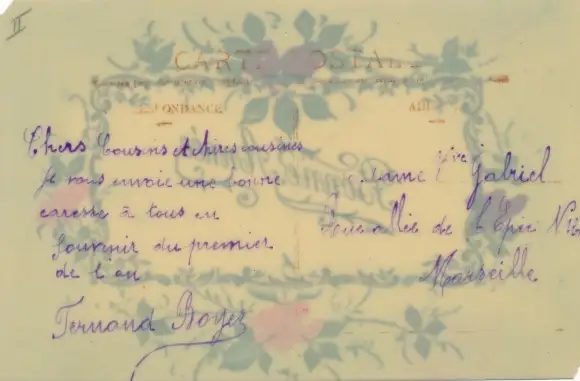 II
CARTE POSTALE
CORRESPONDANCE
Chers Cousins et chères cousines
Je vous envoie une bonne
caresse à tous en
souvenir du premier
de l'an
Fernand Boyer
Madame Vve Gabriel
de l'Épée N
Marseille
Bonne Année